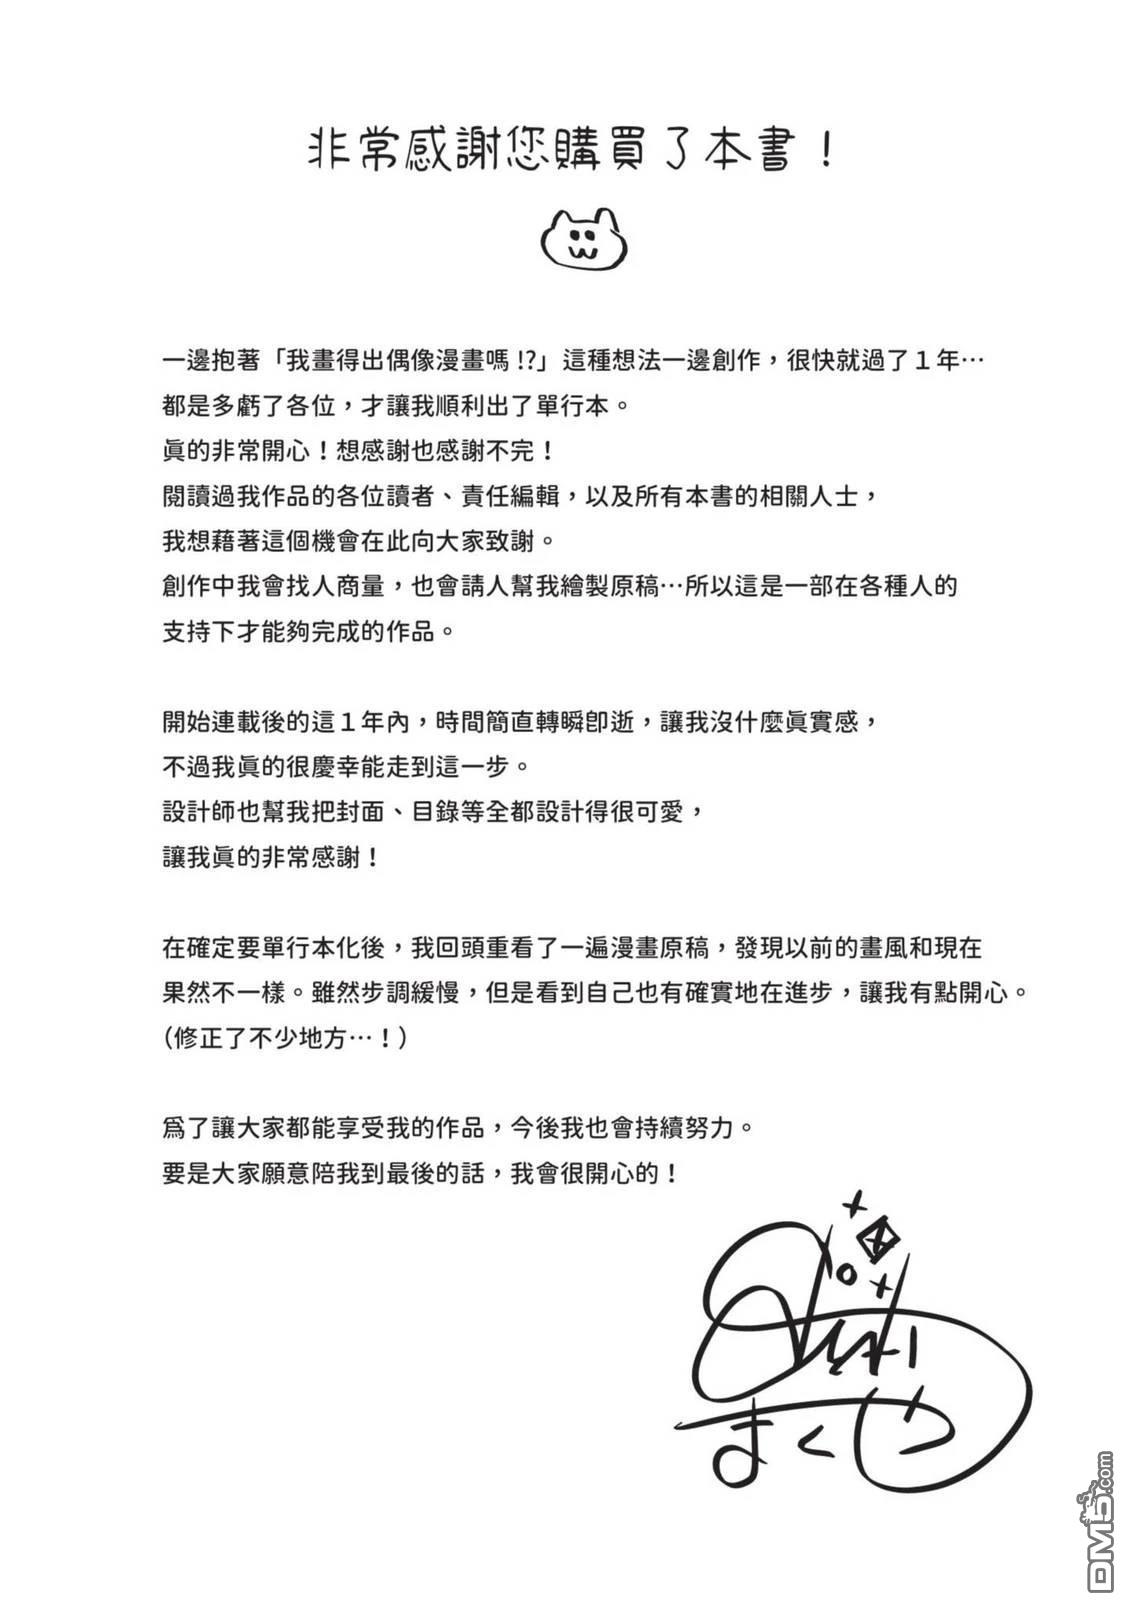 非常感謝您購買了本書！
一邊抱著「我畫得出偶像漫畫嗎!?」這種想法一邊創作，很快就過了１年…
都是多虧了各位，才讓我順利出了單行本。
眞的非常開心！想感謝也感謝不完！
閱讀過我作品的各位讀者、責任編輯，以及所有本書的相關人士，
我想藉著這個機會在此向大家致謝。
創作中我會找人商量，也會請人幫我繪製原稿…所以這是一部在各種人的
支持下才能夠完成的作品。
開始連載後的這１年內，時間簡直轉瞬卽逝，讓我沒什麼眞實感，
不過我眞的很慶幸能走到這一步。
設計師也幫我把封面、目錄等全都設計得很可愛，
讓我眞的非常感謝！
在確定要單行本化後，我回頭重看了一遍漫畫原稿，發現以前的畫風和現在
果然不一樣。雖然步調緩慢，但是看到自己也有確實地在進步，讓我有點開心。
（修正了不少地方…！）
爲了讓大家都能享受我的作品，今後我也會持續努力。
要是大家願意陪我到最後的話，我會很開心的！
まくや
DM5.com